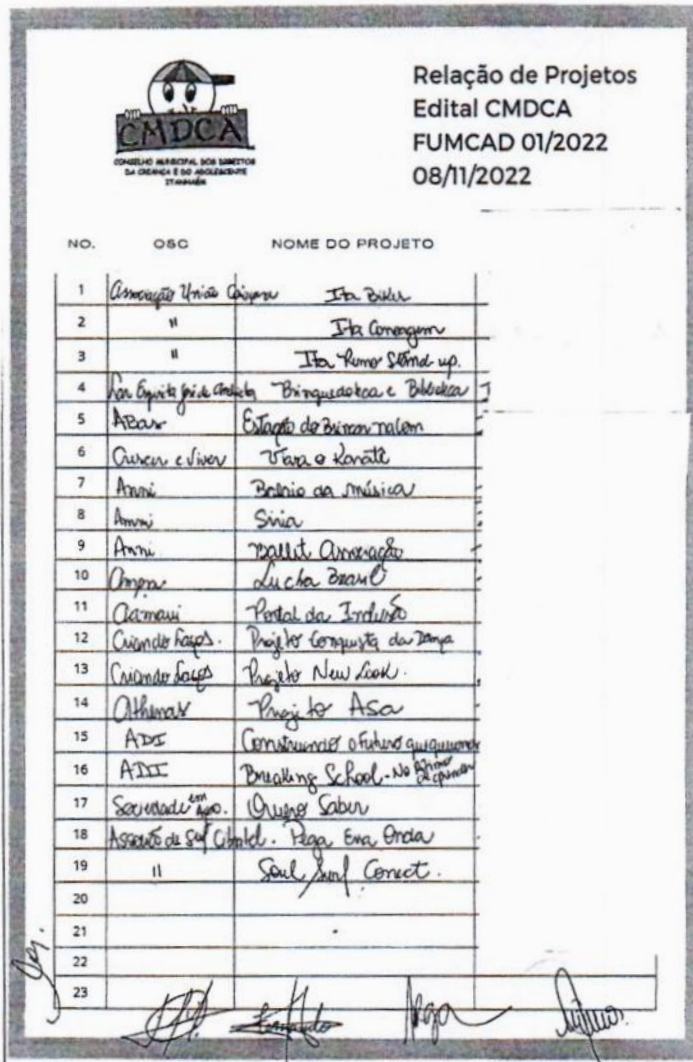 CMDCA
CONSELHO MUNICIPAL DOS DIREITOS
DA CRIANÇA E DO ADOLESCENTE
ITANHAÉM
Relação de Projetos
Edital CMDCA
FUMCAD 01/2022
08/11/2022
NO. OSC NOME DO PROJETO
1 Associação União Caiçara Ita Biker
2 " Ita
3 " Ita Rumo Stand-up.
4 Lar Espírita José de Brinquedoteca e Biblioteca
5 ABas Estação do Brincar
6 Crescer e Viver Karatê
7 Anni da música
8 Anni
9 Anni Ballet Associação
10 Lucha Brasil
11 Portal da Inclusão
12 Criando Laços. Projeto Conquista da Dança
13 Criando Laços Projeto New Look.
14 Athenas Projeto Asa
15 ADI Construindo o futuro
16 ADI Breaking School - No Ritmo
17 Sociedade em Ação. Quero Saber
18 de Surf Cibratel. Pega Essa Onda
19 " Soul Surf Conect.
20
21
22
23